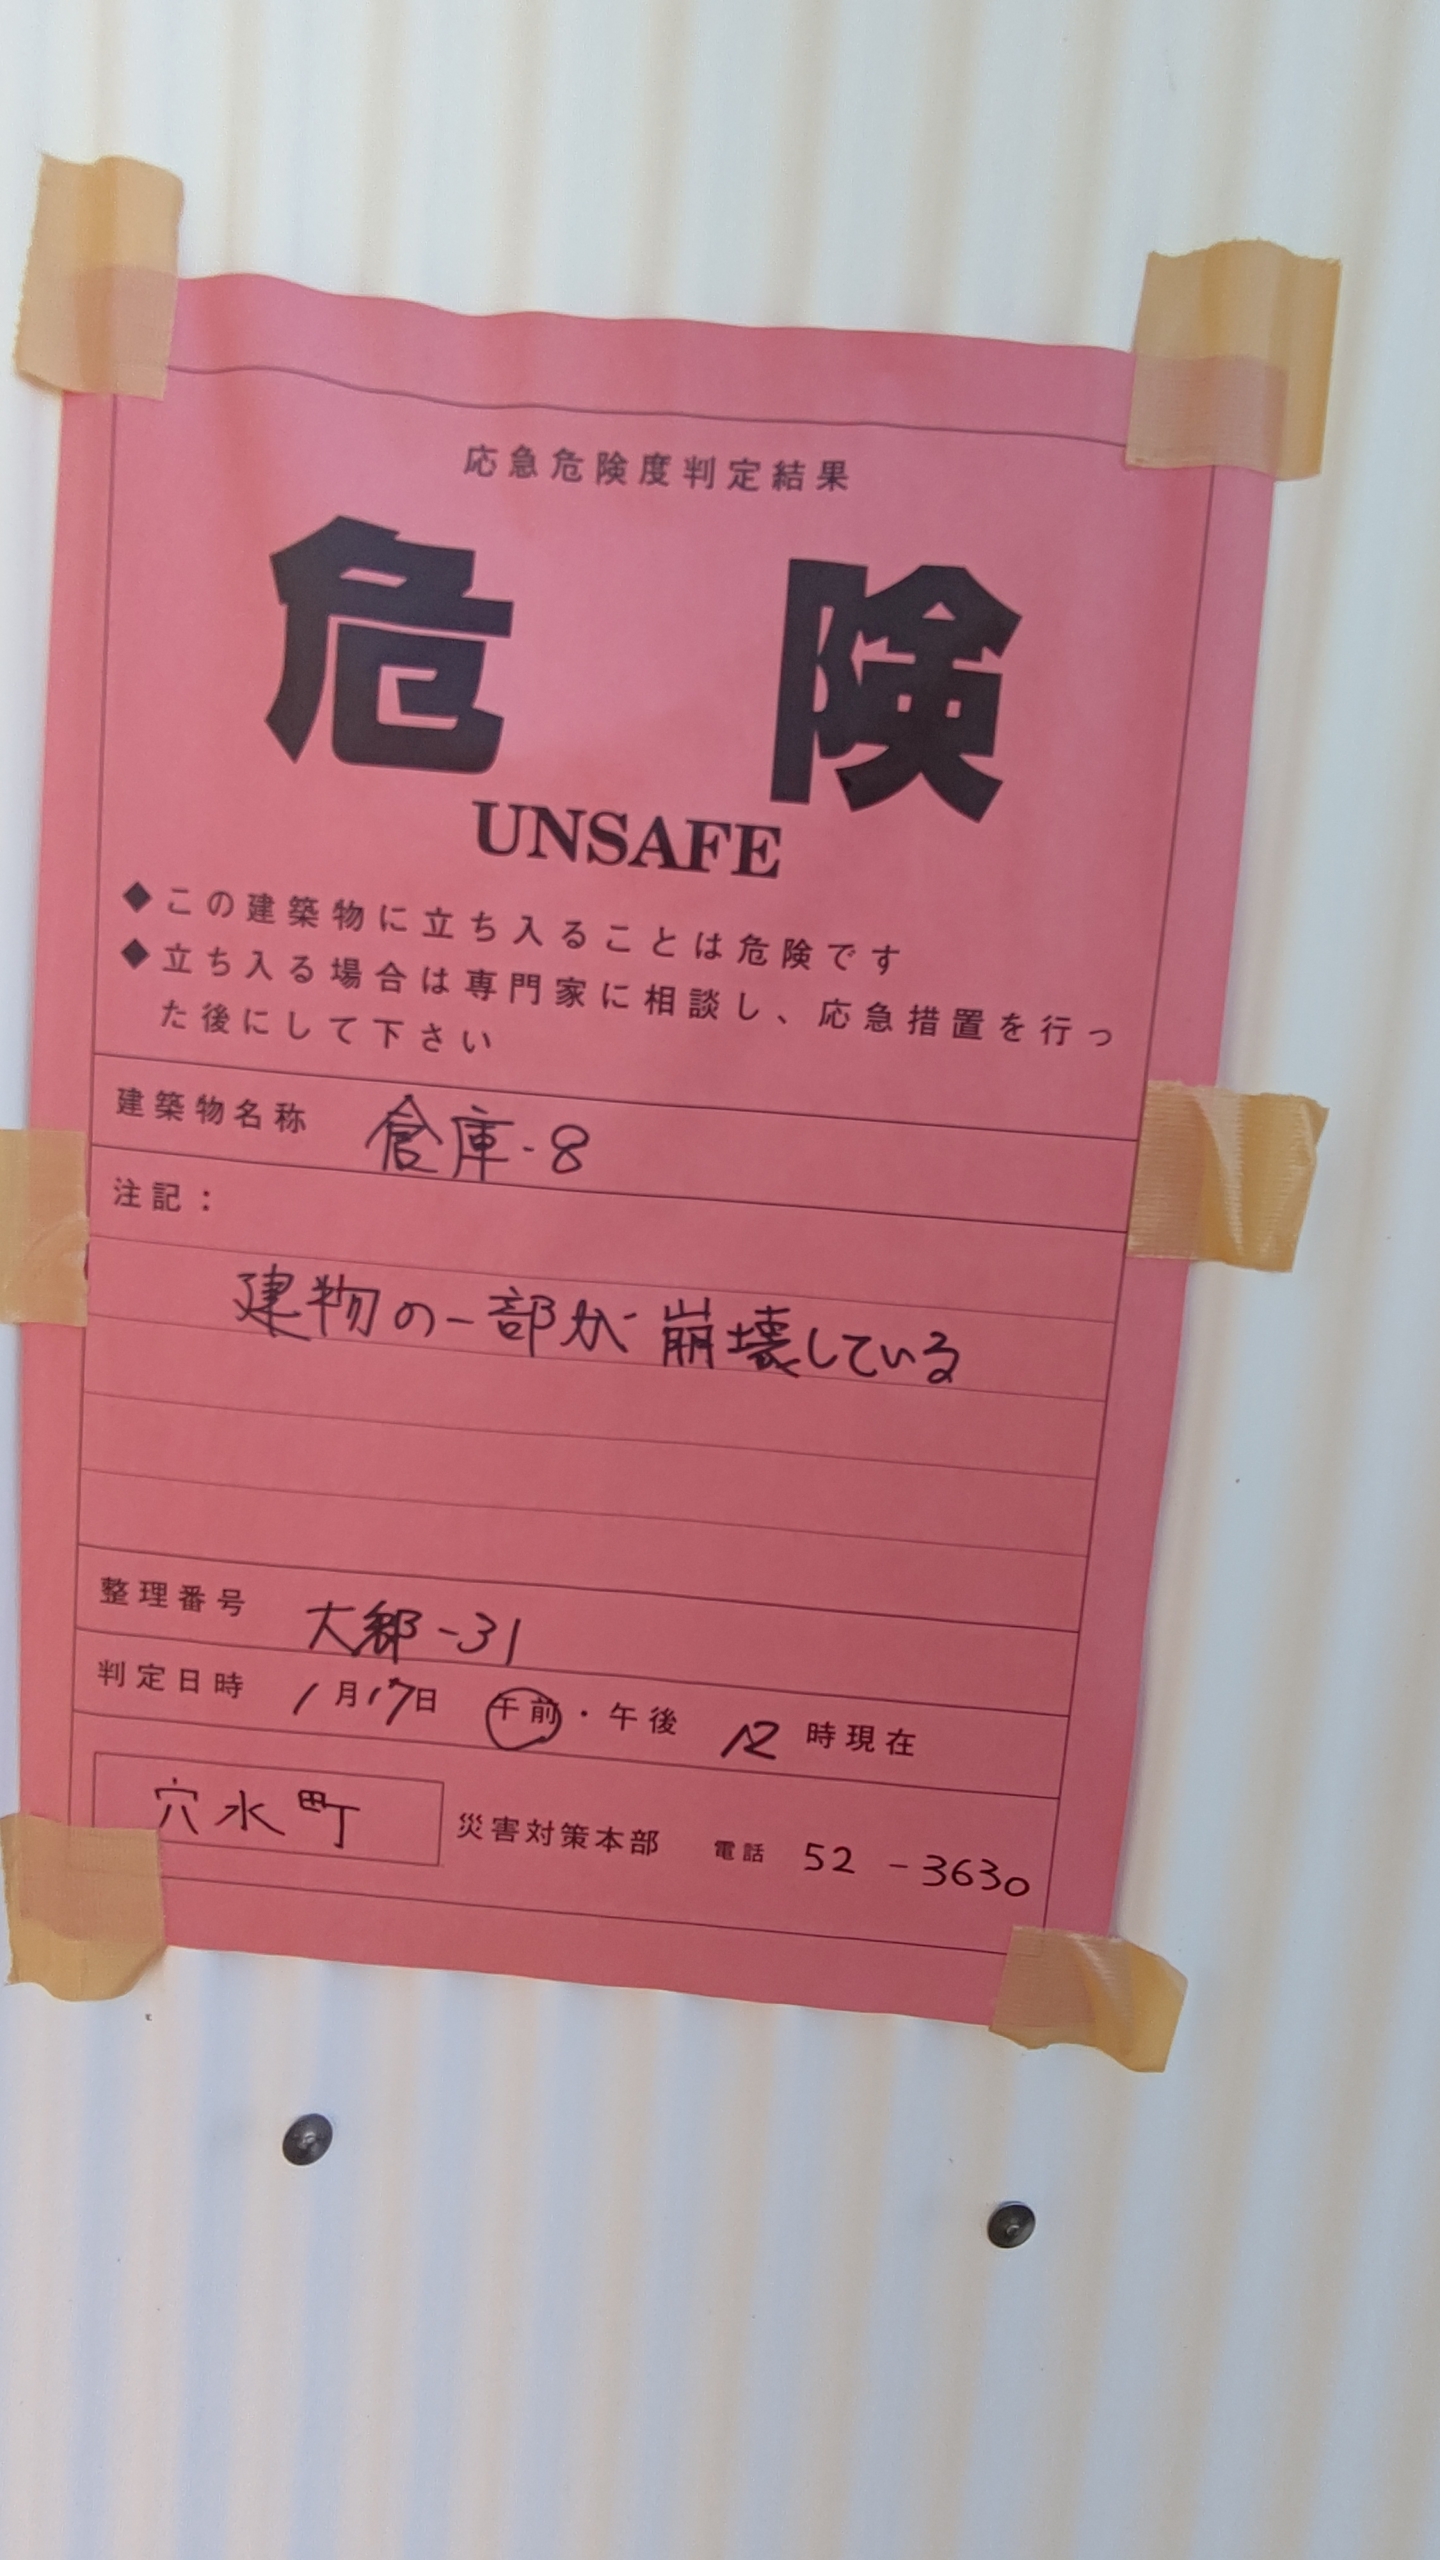 応急危険度判定結果
危険
UNSAFE
◆この建築物に立ち入ることは危険です
◆立ち入る場合は専門家に相談し、応急措置を行っ
た後にして下さい
建築物名称 倉庫-8
注記：
建物の一部が崩壊している
整理番号 大郷-31
判定日時 1月17日 午前・午後 12時現在
穴水町 災害対策本部 電話 52-3630